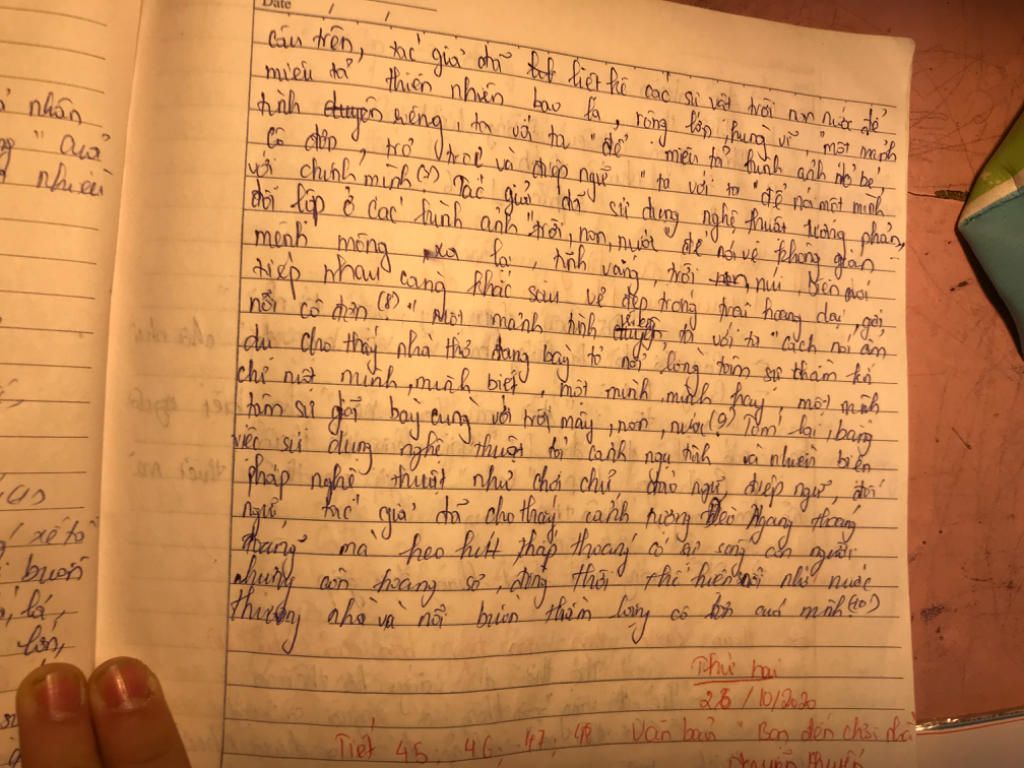 Date / /
câu trên, tác giả đã liệt kê các sự vật trời non nước để
miêu tả thiên nhiên bao la, rộng lớn, hùng vĩ, "một mảnh
tình riêng, ta với ta" để miêu tả hình ảnh nhỏ bé,
cô đơn, trơ trọi và điệp ngữ "ta với ta" để nói một mình
với chính mình (7) Tác giả đã sử dụng nghệ thuật tương phản,
đối lập ở các hình ảnh "trời, non, nước để nói về không gian
mênh mông xa lạ, tĩnh vắng, trời núi, biển nối
tiếp nhau càng khắc sâu vẻ đẹp hoang dại, gợi
nỗi cô đơn (8) "Một mảnh tình riêng, ta với ta" cách nói ẩn
dụ cho thấy nhà thơ đang bày tỏ nỗi lòng tâm sự thầm kín
chỉ một mình, mình biết, một mình mình hay, một mình
tâm sự giãi bày cùng với trời mây, non, nước (9) Tóm lại, bằng
việc sử dụng nghệ thuật tả cảnh ngụ tình và nhiều biện
pháp nghệ thuật như chơi chữ đảo ngữ, điệp ngữ, đối
ngữ, tác giả đã cho thấy cảnh tượng Đèo Ngang thoáng
đãng mà heo hút thấp thoáng có sự sống con người
nhưng còn hoang sơ, đồng thời thể hiện nỗi nhớ nước
thương nhà và nỗi buồn thầm lặng cô đơn của mình (10)
Thứ hai
28/10/2020
Tiết 45, 46, 47, 48 Văn bản "Bạn đến chơi nhà
Nguyễn Khuyến
nhân
"Qua
nhiều
xế tà
buồn
lá,